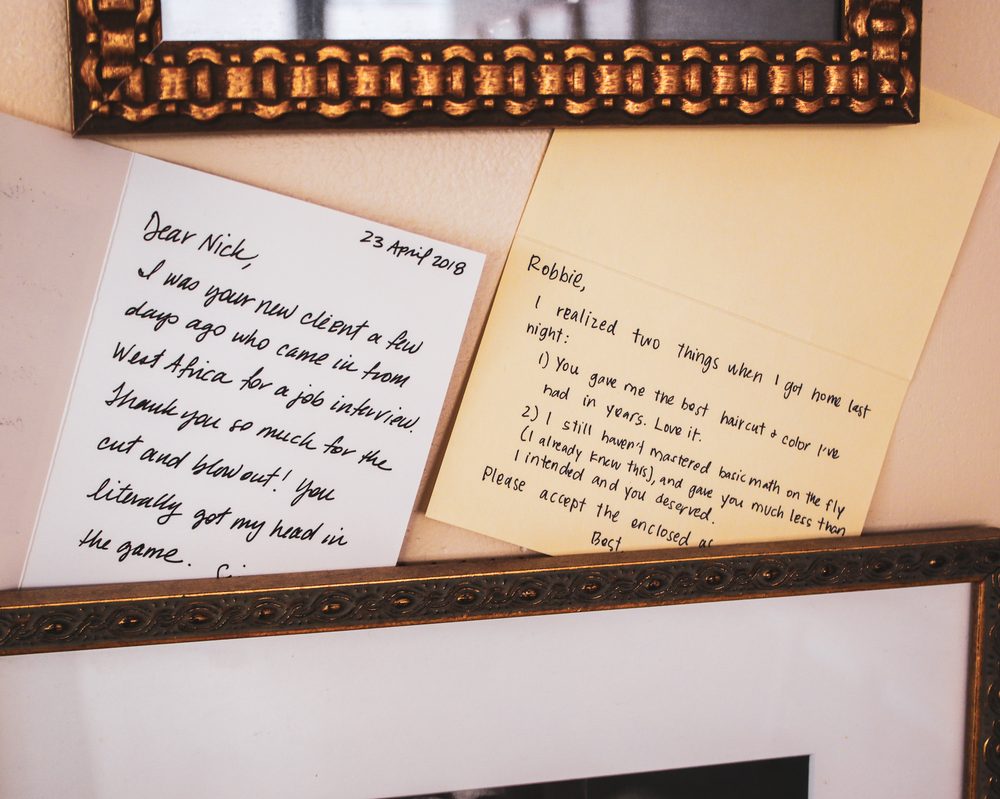 23 April 2018
Dear Nick,
I was your new client a few
days ago who came in from
West Africa for a job interview.
Thank you so much for the
cut and blowout! You
literally got my head in
the game.
Robbie,
I realized two things when I got home last
night:
1) You gave me the best haircut + color I've
had in years. Love it.
2) I still haven't mastered basic math on the fly
(I already knew this), and gave you much less than
I intended and you deserved.
Please accept the enclosed as
Best